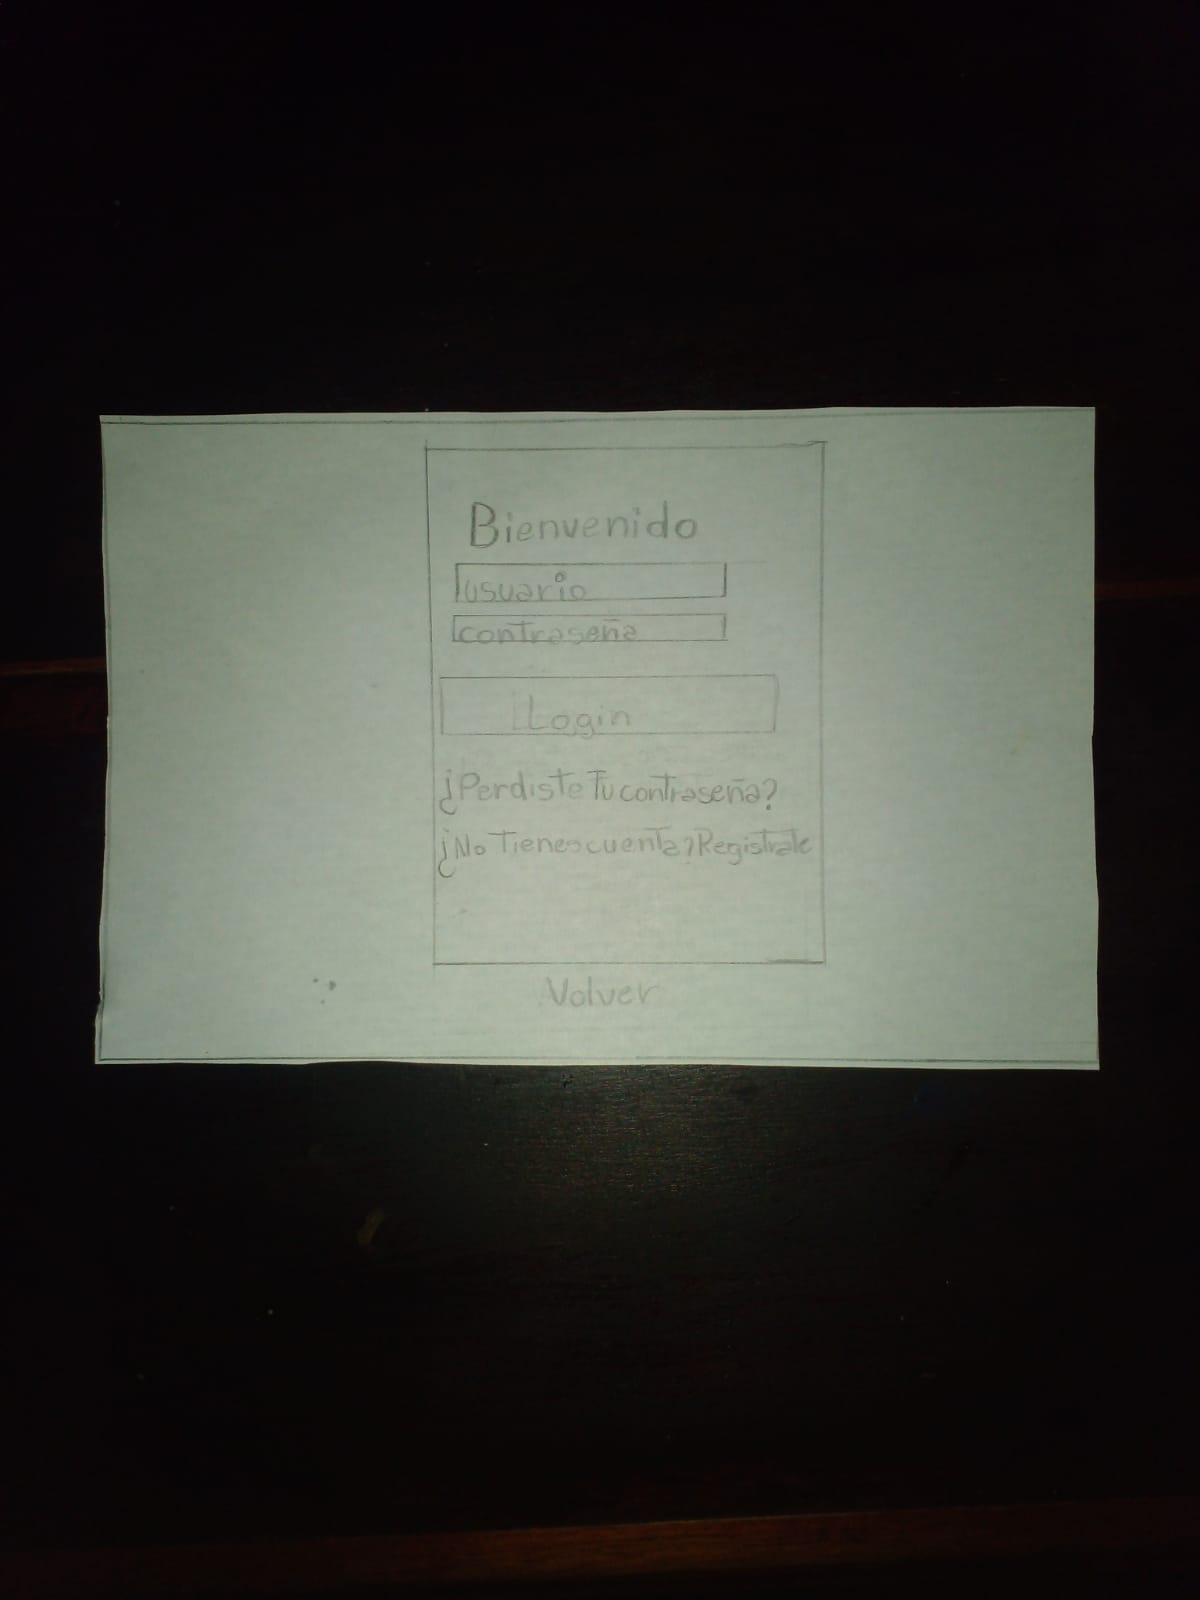 Bienvenido
usuario
contraseña
Login
¿Perdiste Tu contraseña?
¿No Tienes cuenta? Registrate
Volver